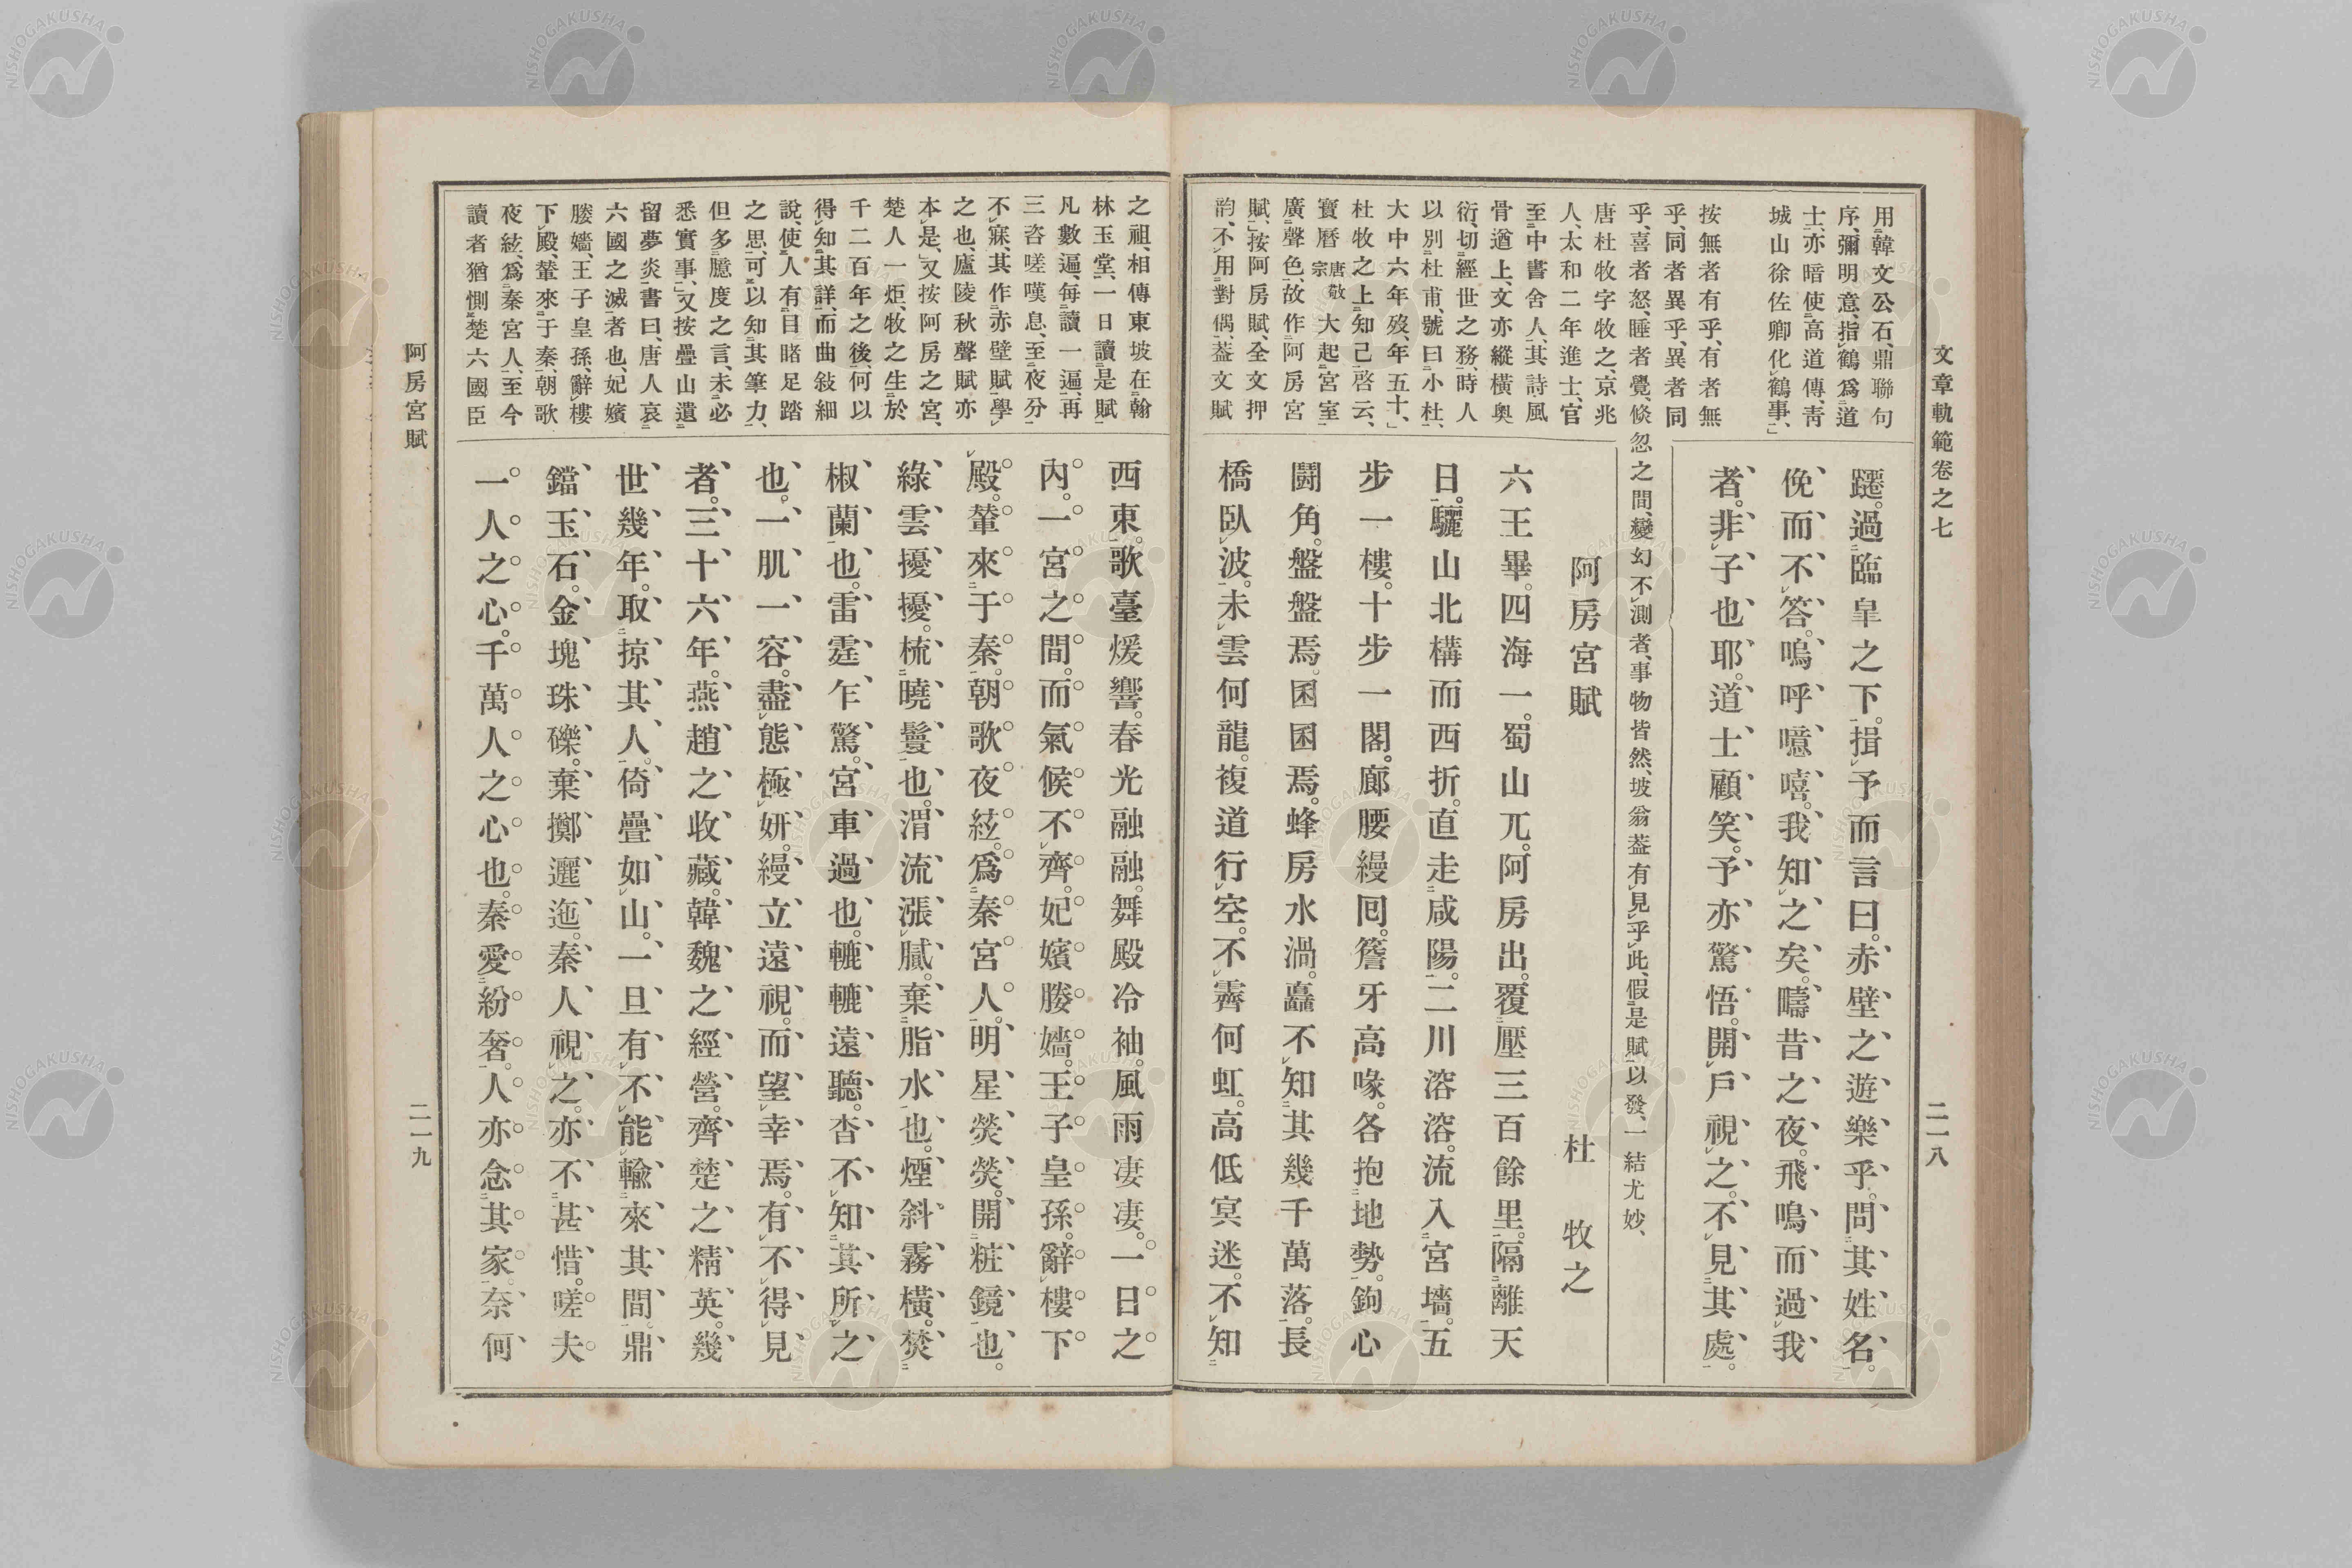 文章軌範卷之七
二一八
用韓文公石鼎聯句
序、彌明意、指鶴爲道
士、亦暗使高道傳、靑
城山徐佐卿化鶴事、」
按無者有乎、有者無
乎、同者異乎、異者同
乎、喜者怒、睡者覺、倏
忽之間、變幻不測者、事物皆然、坡翁葢有見乎此、假是賦以發、一結尤妙、
唐杜牧字牧之、京兆
人、太和二年進士、官
至中書舍人、其詩風
骨遒上、文亦縱橫奧
衍、切經世之務、時人
以別杜甫、號曰小杜、
大中六年歿、年五十、」
杜牧之上知己啓云、
寶曆唐敬宗大起宮室
廣聲色、故作阿房宮
賦、」按阿房賦、全文押
韵、不用對偶、葢文賦
躚。過臨皐之下。揖予而言曰。赤壁之遊樂乎。問其姓名。
俛而不答。嗚呼噫嘻。我知之矣。疇昔之夜。飛鳴而過我
者。非子也耶。道士顧笑。予亦驚悟。開戶視之。不見其處。
阿房宮賦　杜牧之
六王畢。四海一。蜀山兀。阿房出。覆壓三百餘里。隔離天
日。驪山北構而西折。直走咸陽。二川溶溶。流入宮墻。五
步一樓。十步一閣。廊腰縵囘。簷牙高喙。各抱地勢。鉤心
鬪角。盤盤焉。囷囷焉。蜂房水渦。矗不知其幾千萬落。長
橋臥波。未雲何龍。複道行空。不霽何虹。高低冥迷。不知
之祖、相傳東坡在翰
林玉堂、一日讀是賦
凡數遍、每讀一遍、再
三咨嗟嘆息、至夜分
不寐、其作赤壁賦、學
之也、廬陵秋聲賦亦
本是、」又按阿房之宮、
楚人一炬、牧之生於
千二百年之後、何以
得知其詳、而曲敍細
說、使人有目睹足踏
之思、可以知其筆力、
但多臆度之言、未必
悉實事、」又按疊山遺
留夢炎書曰、唐人哀
六國之滅者也、妃嬪
媵嬙、王子皇孫、辭樓
下殿、輦來于秦、朝歌
夜絃、爲秦宮人、至今
讀者猶惻楚六國臣
西東。歌臺煖響。春光融融。舞殿冷袖。風雨凄凄。一日之
內。一宮之間。而氣候不齊。妃嬪媵嬙。王子皇孫。辭樓下
殿。輦來于秦。朝歌夜絃。爲秦宮人。明星熒熒。開粧鏡也。
綠雲擾擾。梳曉鬟也。渭流漲膩。棄脂水也。煙斜霧橫。焚
椒蘭也。雷霆乍驚。宮車過也。轆轆遠聽。杳不知其所之
也。一肌一容。盡態極妍。縵立遠視。而望幸焉。有不得見
者。三十六年。燕趙之收藏。韓魏之經營。齊楚之精英。幾
世幾年。取掠其人。倚疊如山。一旦有不能輸來其間。鼎
鐺玉石。金塊珠礫。棄擲邐迤。秦人視之。亦不甚惜。嗟夫
一人之心。千萬人之心也。秦愛紛奢。人亦念其家。奈何
阿房宮賦
二一九